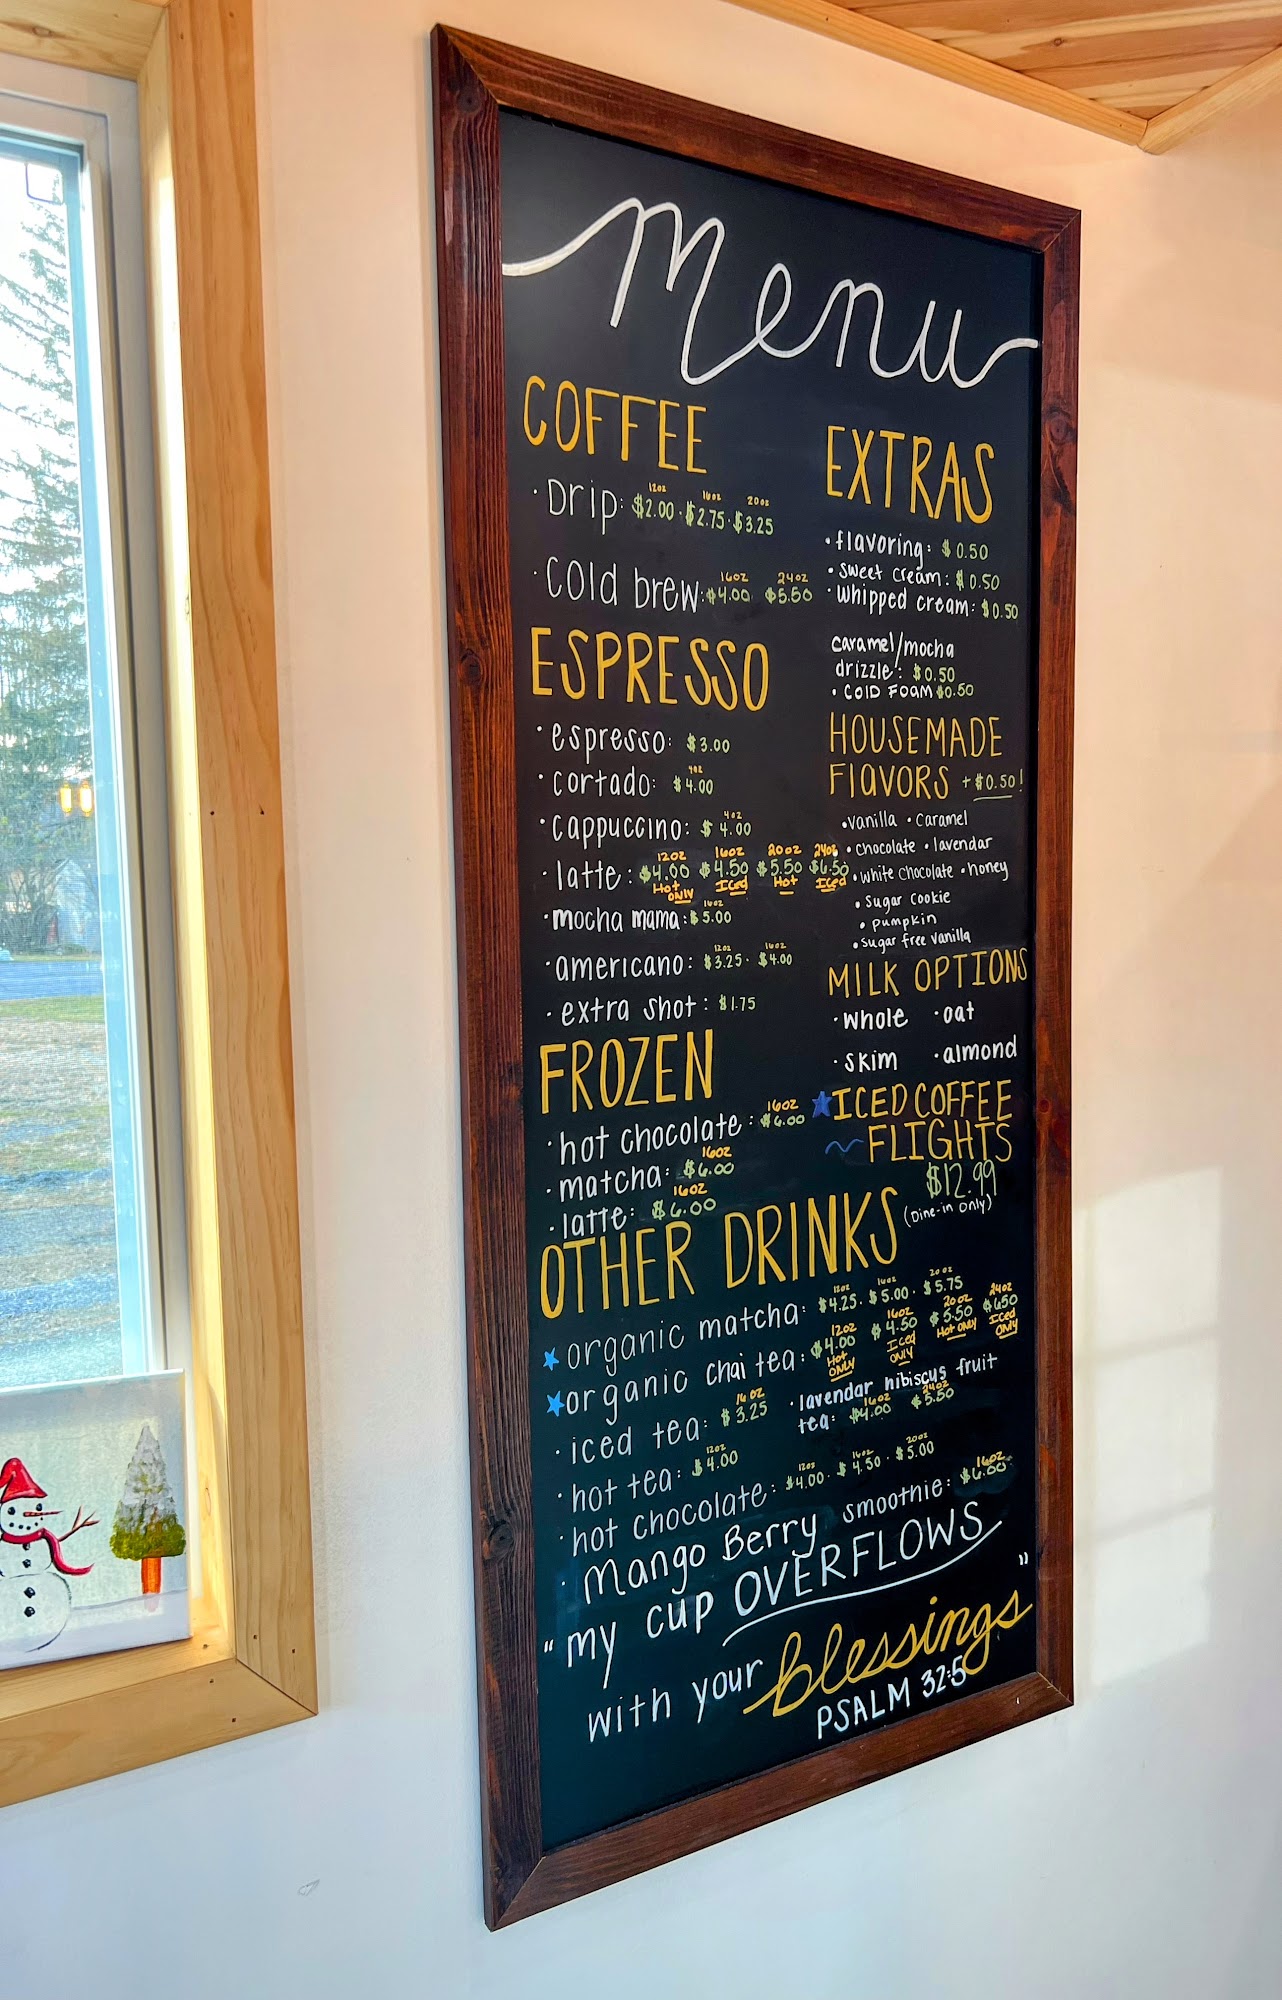 Menu
COFFEE
12oz 16oz 20oz
· Drip: $2.00 · $2.75 · $3.25
16oz 24oz
· Cold brew: $4.00 $5.50
ESPRESSO
· espresso: $3.00
4oz
· cortado: $4.00
4oz
· cappuccino: $4.00
12oz 16oz 20oz 24oz
· latte: $4.00 $4.50 $5.50 $6.50
Hot ONLY Iced Hot Iced
16oz
· mocha mama: $5.00
12oz 16oz
· americano: $3.25 · $4.00
· extra shot: $1.75
FROZEN
16oz
· hot chocolate: $6.00
16oz
· matcha: $6.00
16oz
· latte: $6.00
EXTRAS
· flavoring: $0.50
· sweet cream: $0.50
· whipped cream: $0.50
caramel/mocha
drizzle: $0.50
· COLD FOAM $0.50
HOUSEMADE
FLAVORS + $0.50!
· vanilla · caramel
· chocolate · lavendar
· white chocolate · honey
· sugar cookie
· pumpkin
· sugar free vanilla
MILK OPTIONS
· whole · oat
· skim · almond
ICED COFFEE
FLIGHTS
$12.99
(Dine-in only)
OTHER DRINKS
12oz 16oz 20oz
organic matcha: $4.25 · $5.00 · $5.75
12oz 16oz 20oz 24oz
organic chai tea: $4.00 $4.50 $5.50 $6.50
Hot ONLY Iced ONLY Hot ONLY Iced ONLY
16oz
· iced tea: $3.25
· lavendar hibiscus fruit
16oz 24oz
tea: $4.00 $5.50
12oz
· hot tea: $4.00
12oz 16oz 20oz
· hot chocolate: $4.00 · $4.50 · $5.00
16oz
· Mango Berry smoothie: $6.00
"my cup OVERFLOWS
with your blessings"
PSALM 32:5